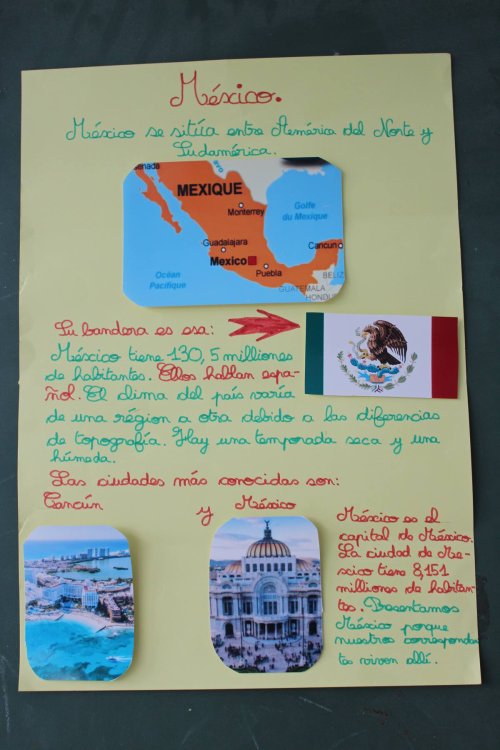 México.
México se sitúa entre América del Norte y
Sudamérica.
MEXIQUE
Monterrey
Golfe
du Mexique
Guadalajara
Cancun
Mexico
Puebla
Océan
Pacifique
BELIZ
GUATEMALA
HONDUR
Su bandera es esa:
México tiene 130,5 milliones
de habitantes. Ellos hablan espa-
ñol. El clima del país varía
de una région a otra debido a las diferencias
de topografía. Hay una temporada seca y una
húmeda.
Las ciudades más conocidas son:
Cancún y México
México es el
capital de México.
La ciudad de Mé-
xico tiene 8,151
milliones de habitan-
tes. Presentamos
México porque
nuestros correspondan
tes viven allí.